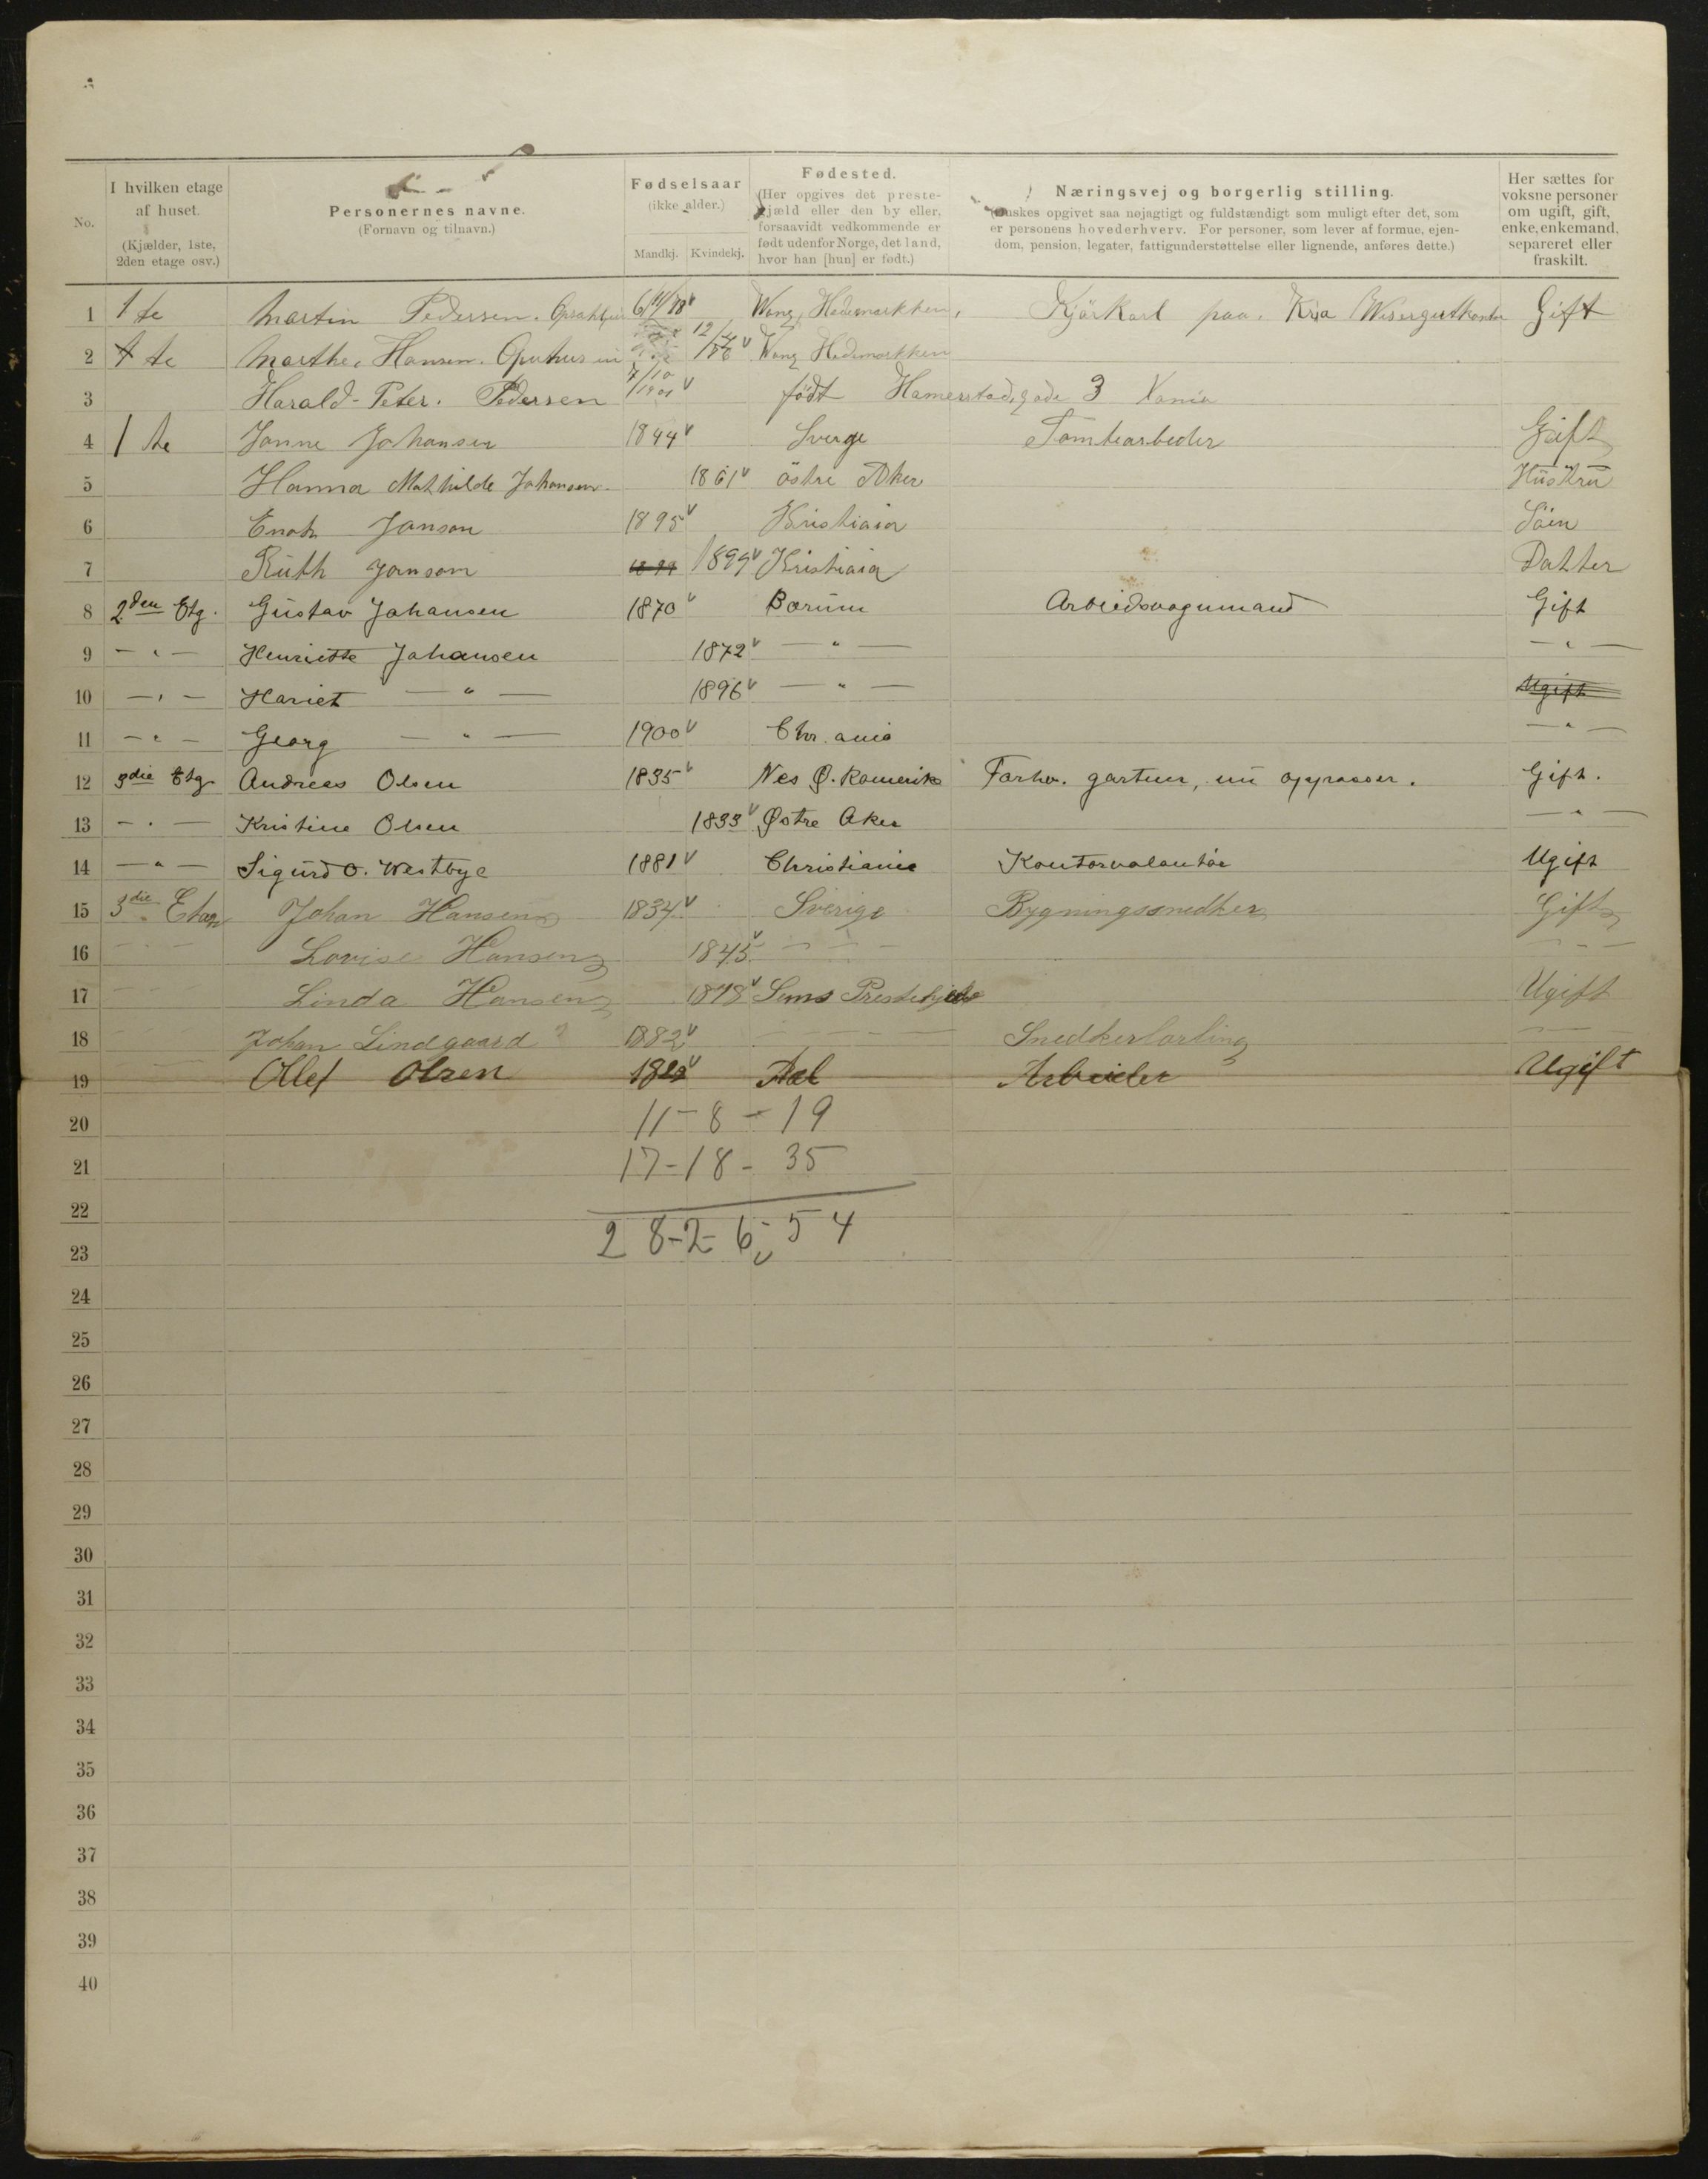 No.
I hvilken etage af huset. (Kjælder, 1ste, 2den etage osv.)
Personernes navne. (Fornavn og tilnavn.)
Fødselsaar (ikke alder.) Mandkj. Kvindekj.
Fødested. (Her opgives det prestegjæld eller den by eller, forsaavidt vedkommende er født udenfor Norge, det land, hvor han [hun] er født.)
Næringsvej og borgerlig stilling. (Ønskes opgivet saa nøjagtigt og fuldstændigt som muligt efter det, som er personens hovederhverv. For personer, som lever af formue, ejendom, pension, legater, fattigunderstøttelse eller lignende, anføres dette.)
Her sættes for voksne personer om ugift, gift, enke, enkemand, separeret eller fraskilt.
1 1 te Martin Pedersen. Wang, Hedemarkken, Kjörkarl paa. Kria Gift
2 1 te Marthe, Hansen. Wang Hedemarkken
3 Harald-Peter. Pedersen 7/10 1901 født Hamerstadsgade 3 Xania
4 1 te Janne Johansen 1844 Sverge Tomtearbeder Gift
5 Hanna Mathilde Johansen. 1861 östre Aker Hüstru
6 Enok Janson 1895 Kristiaia Söin
7 Ruth Janson 1899 1899 Kristiaia Datter
8 2den Etg. Gustav Johansen 1870 Bærum Arbeidsvognmand Gift
9 — " — Henriette Johansen 1872 — " — — " —
10 — " — Hariet — " — 1896 — " — Ugift
11 — " — Georg — " — 1900 Chr.ania — " —
12 3die Etg Andreas Olsen 1835 Nes Ø. Romerike Forhv. gartner, nu oppasser. Gift.
13 — " — Kristine Olsen 1833 Østre Aker — " —
14 — " — Sigurd O. Westbye 1881 Christiania Kontorvolontör Ugift
15 3die Etag Johan Hansen 1834 Sverige Bygningssnedker Gift
16 — " — Lovise Hansen 1845 — " — — " —
17 — — Linda Hansen 1878 Sems Prestegjeld Ugift
18 — — Johan Lindgaard 1882 — — " — Snedkerlærling — —
19 Ollef Olsen Aal Arbeider Ugift
20 11 - 8 - 19
21 17 - 18 - 35
22
23 28 - 26 - 54
24
25
26
27
28
29
30
31
32
33
34
35
36
37
38
39
40